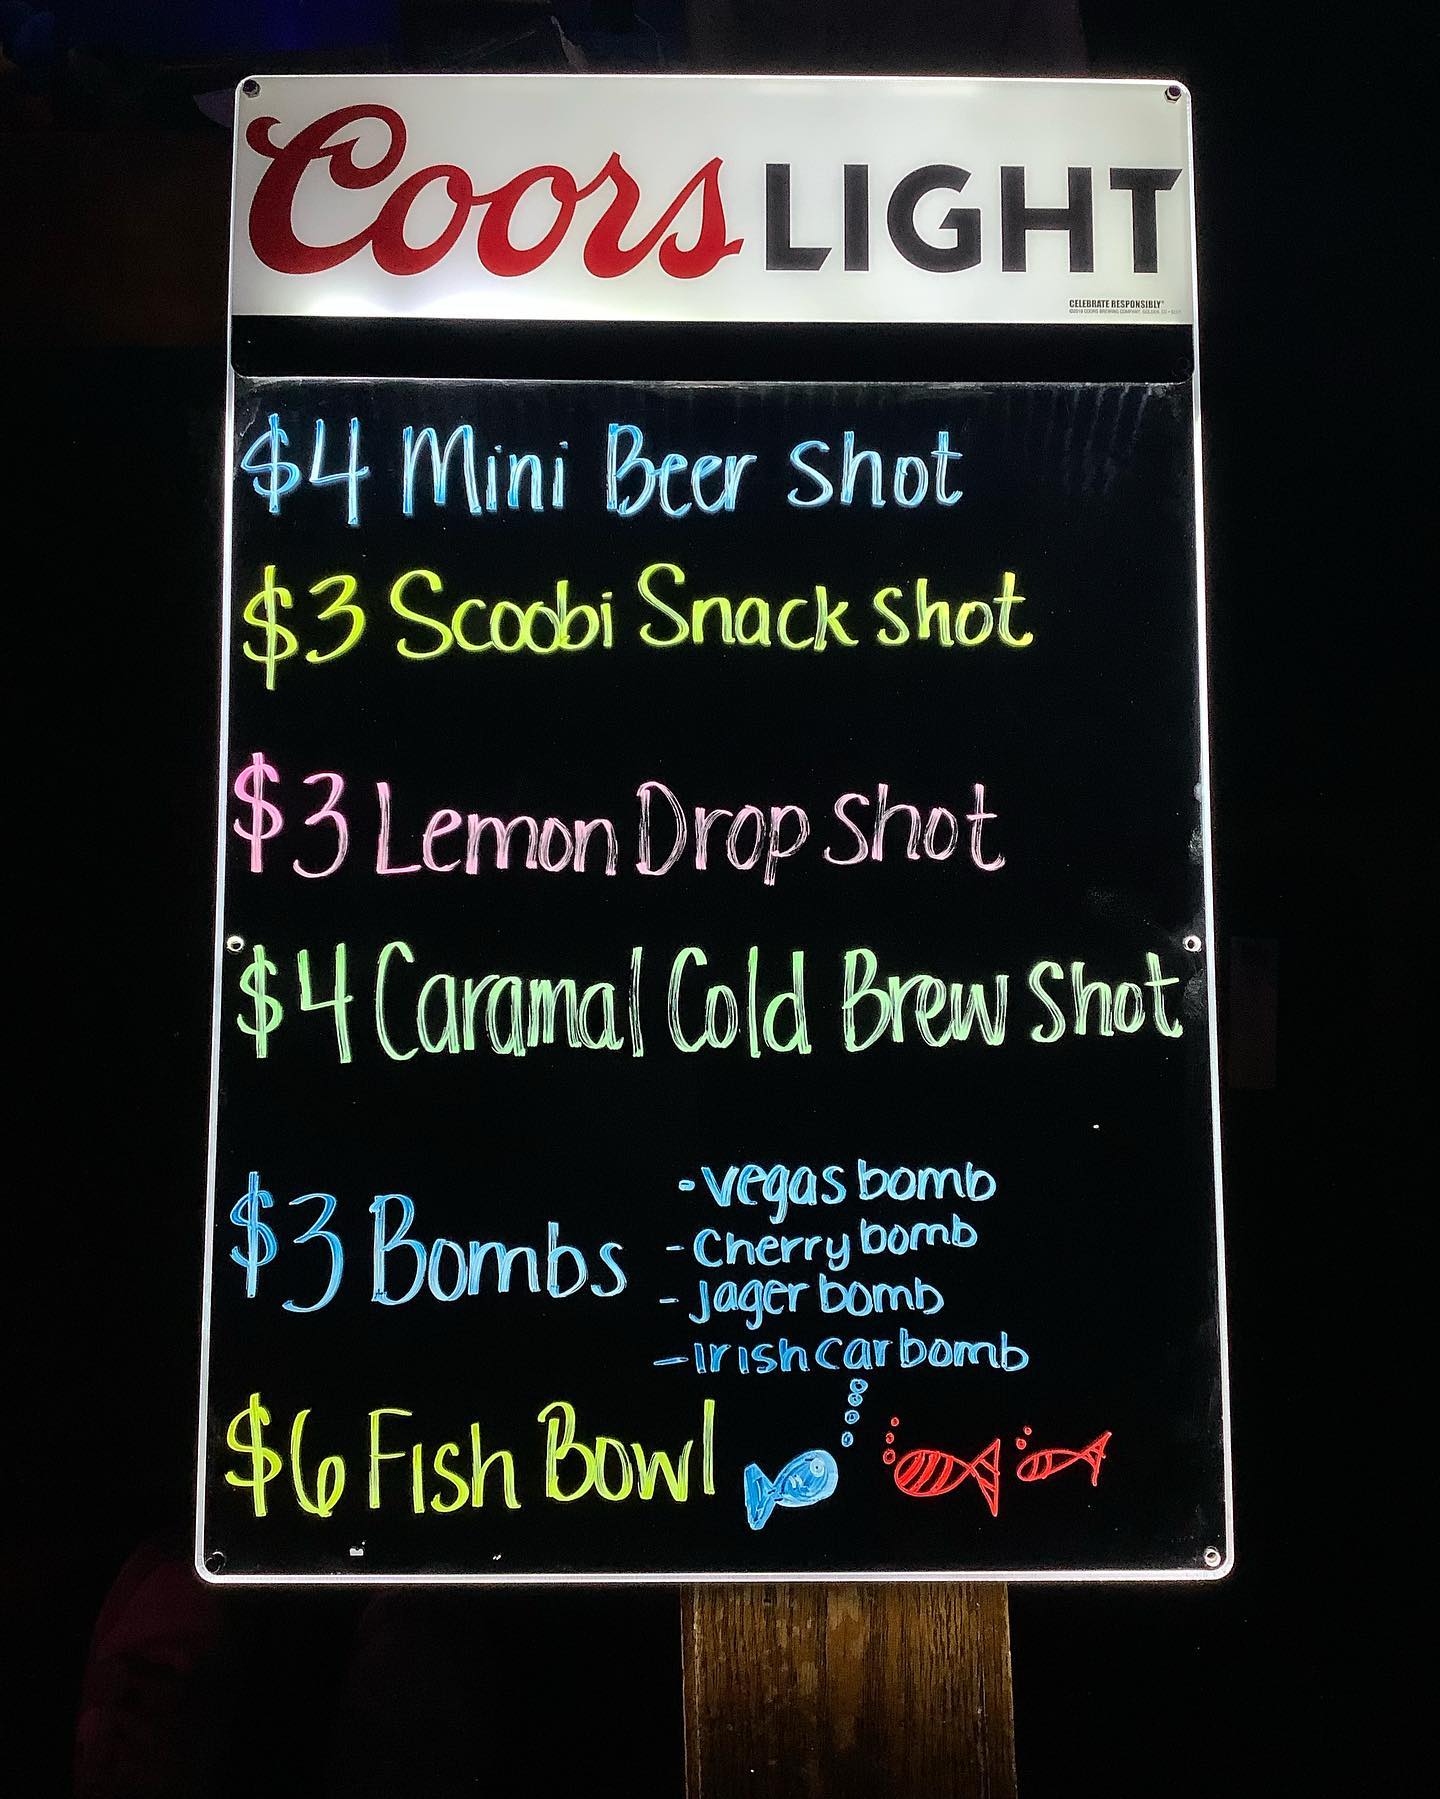 Coors LIGHT
CELEBRATE RESPONSIBLY®
$4 Mini Beer shot
$3 Scoobi Snack shot
$3 Lemon Drop shot
$4 Caramal Cold Brew shot
- vegas bomb
$3 Bombs
- Cherry bomb
- Jager bomb
- irish car bomb
$6 Fish Bowl